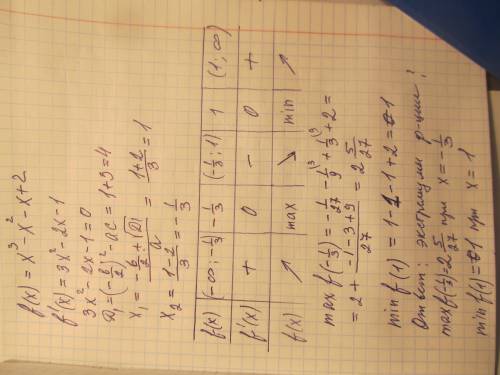 f(x) = x³ - x² - x + 2
f'(x) = 3x² - 2x - 1
3x² - 2x - 1 = 0
D₁ = (-b/2)² - ac = 1 + 3 = 4
x₁ = (-b/2 ± √D₁)/a = (1+2)/3 = 1
x₂ = (1-2)/3 = -1/3
f(x) (-∞; -1/3) -1/3 (-1/3; 1) 1 (1; ∞)
f'(x) + 0 - 0 +
f(x) ↗ max ↘ min ↗
max f(-1/3) = -1/27 - 1/9 + 1/3 + 2 =
= 2 + (-1-3+9)/27 = 2 5/27
min f(1) = 1 - 1 - 1 + 2 = 1
Ответ: экстремумы ф-ции:
max f(-1/3) = 2 5/27 при x = -1/3
min f(1) = 1 при x = 1